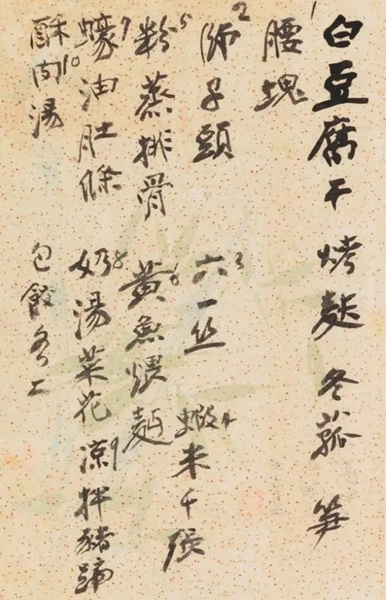 白豆腐干 烤麩 冬菰 筍
1腰塊
2師子頭 3六一丝 4蝦米千張
5粉蒸排骨 6黃魚煨麵
7蠔油肚條 8奶湯菜花 9涼拌豬蹄
10酥肉湯 包餃各